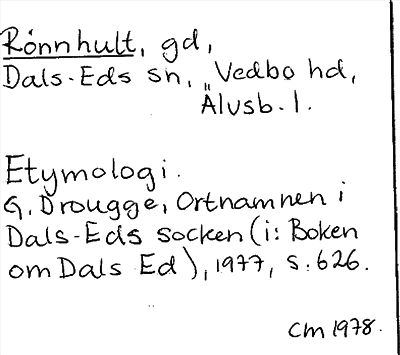 Rönnhult, gd,
Dals-Eds sn, Vedbo hd,
Älvsb. l.
Etymologi.
G. Drougge, Ortnamnen i
Dals-Eds socken (i: Boken
om Dals Ed), 1977, s. 626.
CM 1978.